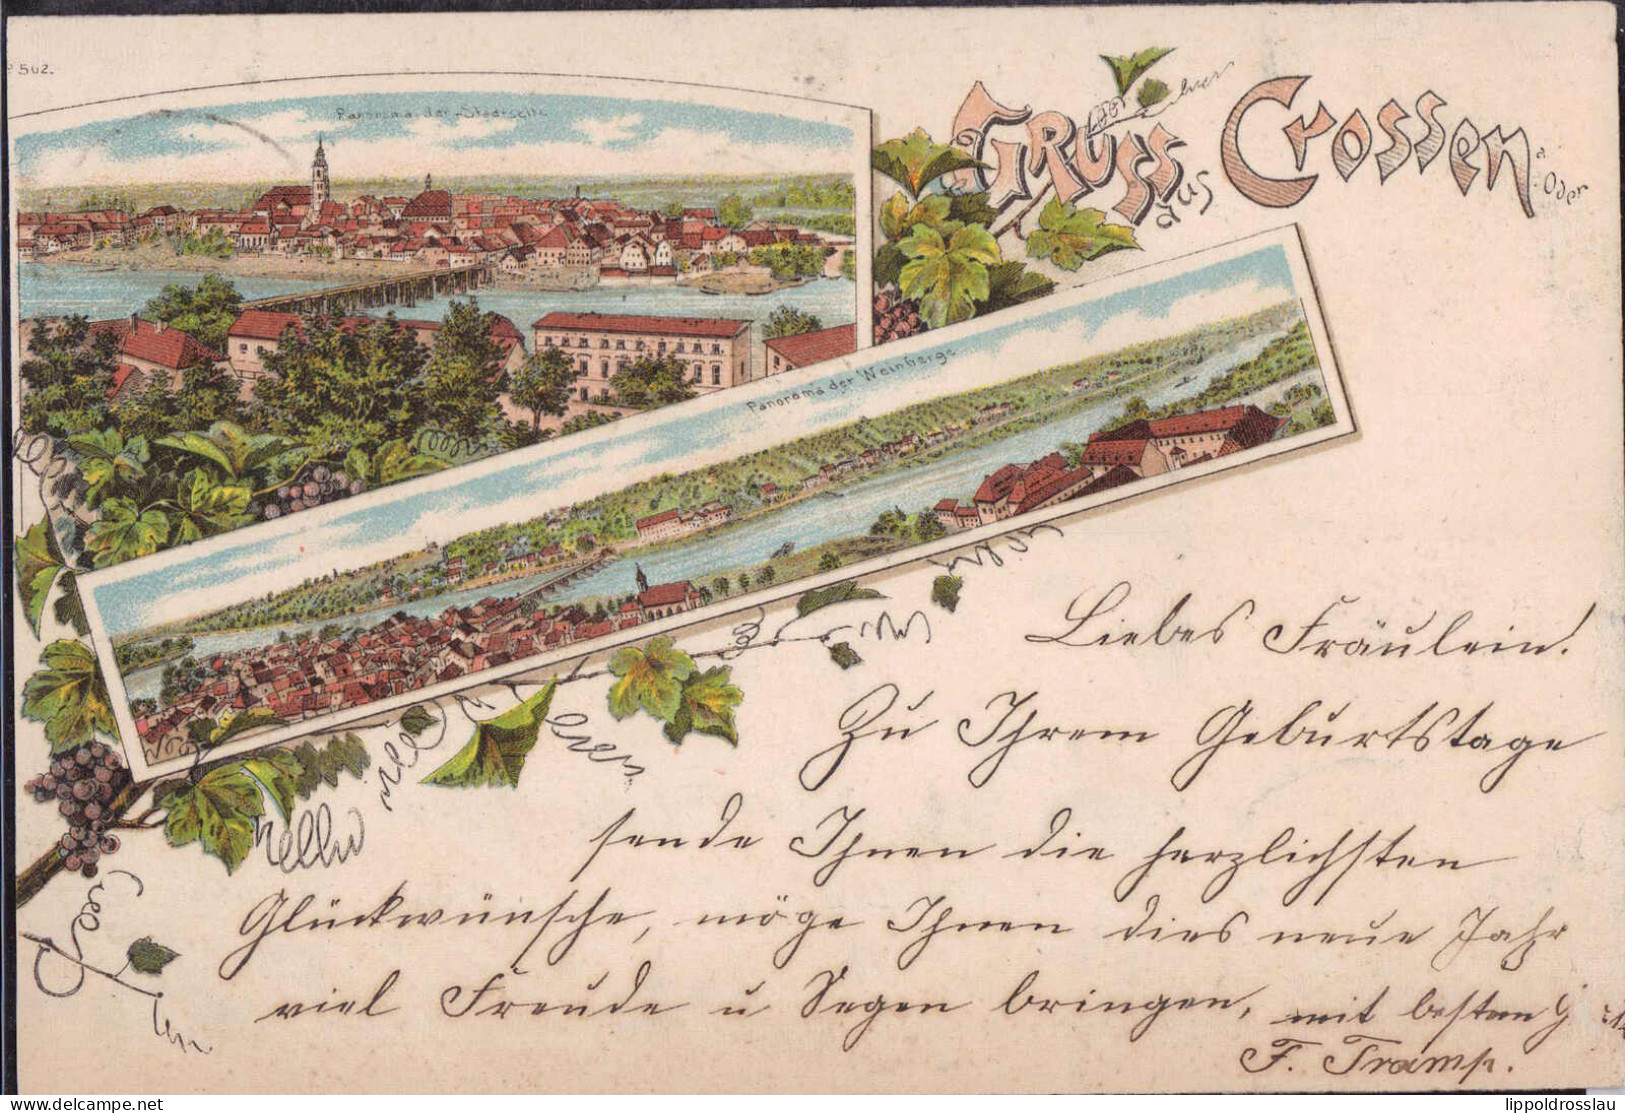 502.
Panorama der Stadtseite
Gruss
aus
Crossen
a. Oder
Panorama der Weinberge
Liebes Fräulein!
Zu Ihrem Geburtstage
sende Ihnen die herzlichsten
Glückwünsche, möge Ihnen dies neue Jahr
viel Freude u Segen bringen, mit bestem G
F. Tramp.
© the-collectors.com
lippoldrosslau